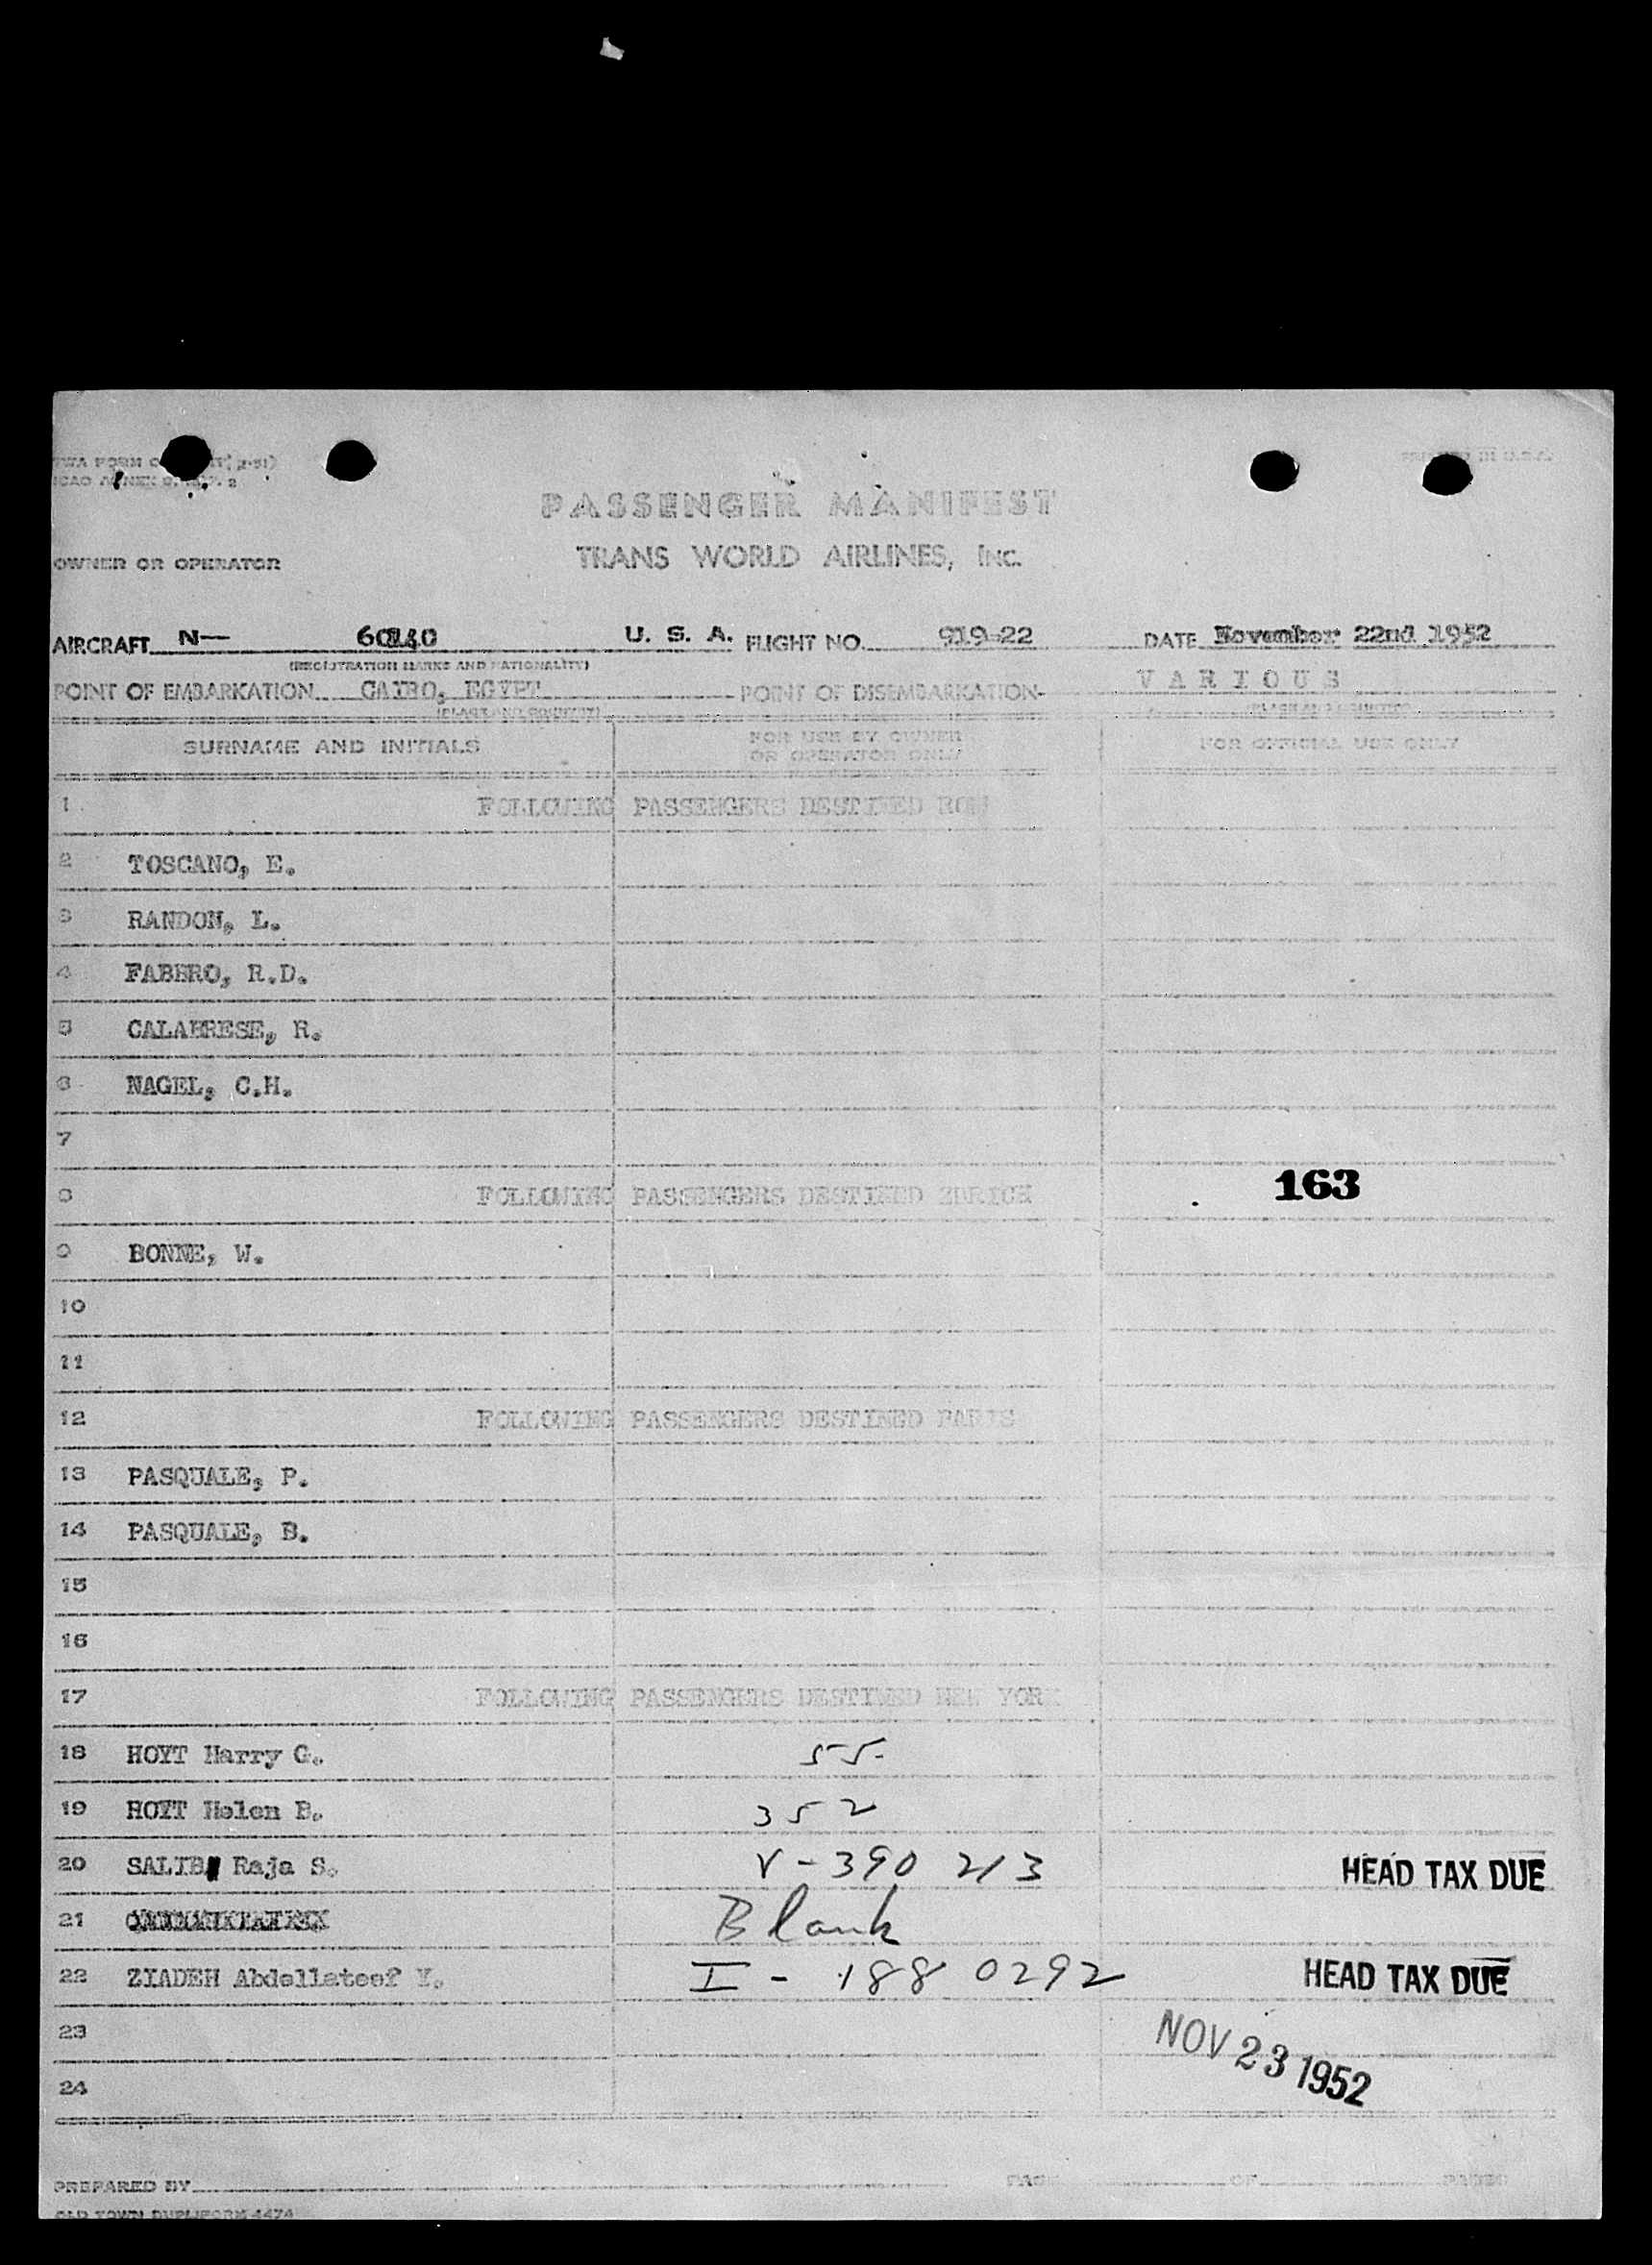 PASSENGER MANIFEST
OWNER OR OPERATOR TRANS WORLD AIRLINES, INC.
AIRCRAFT N— U. S. A. FLIGHT NO. 919-22 DATE November 22nd 1952
(REGISTRATION MARKS AND NATIONALITY)
POINT OF EMBARKATION CAIRO, EGYPT POINT OF DISEMBARKATION VARIOUS
(PLACE AND COUNTRY) (PLACE AND COUNTRY)
SURNAME AND INITIALS FOR USE BY OWNER OR OPERATOR ONLY FOR OFFICIAL USE ONLY
1 FOLLOWING PASSENGERS DESTINED ROM
2 TOSCANO, E.
3 RANDON, L.
4 FABBRO, R.D.
5 CALABRESE, R.
6 NAGEL, C.H.
7
163
8 FOLLOWING PASSENGERS DESTINED ZURICH
9 BONNE, W.
10
11
12 FOLLOWING PASSENGERS DESTINED PARIS
13 PASQUALE, P.
14 PASQUALE, B.
15
16
17 FOLLOWING PASSENGERS DESTINED NEW YORK
18 HOYT Harry G. 55-
19 HOYT Helen B. 352
20 SALIB Raja S. V-390 213 HEAD TAX DUE
21 Blank
22 ZIADEH Abdellateef Y. I - 188 0292 HEAD TAX DUE
23 NOV 23 1952
24
PREPARED BY PAGE OF PAGES